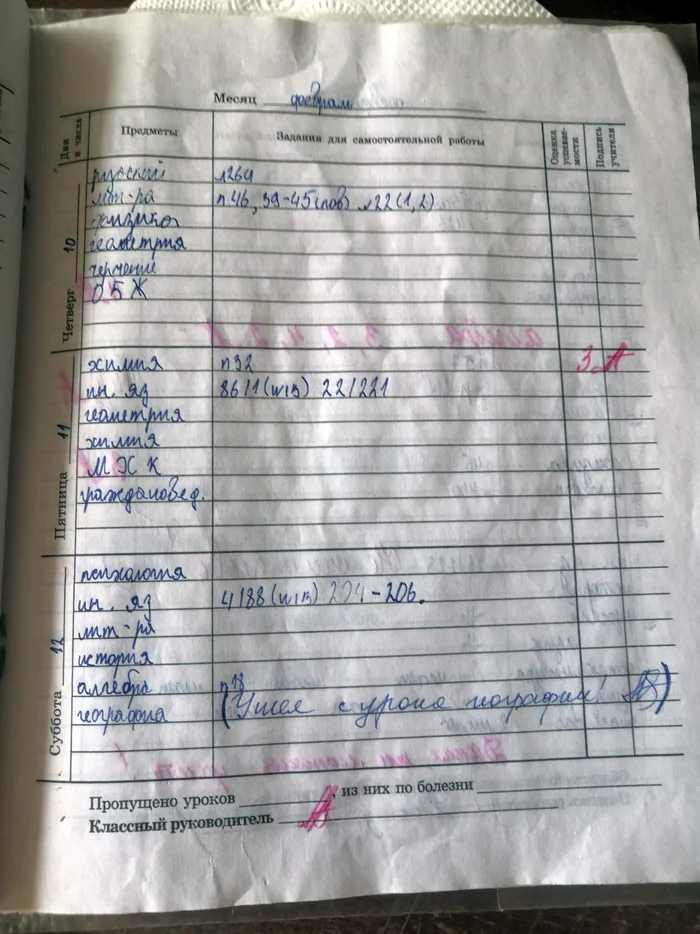 Месяц февраль
Дни и числа Предметы Задания для самостоятельной работы Оценка успеваемости Подпись учителя
Четверг 10
русский №269
лит-ра п 46, 39-45(пов) №22(1,2)
физика
геометрия
черчение
ОБЖ
Пятница 11
химия п32 3
ин. яз 86/1(WB) 221221
геометрия
химия
МХК
граждановед.
Суббота 12
психология
ин. яз 4/88(WB) 204-206.
лит-ра
история
алгебра п18
география (Ушел с урока географии!)
Пропущено уроков из них по болезни
Классный руководитель